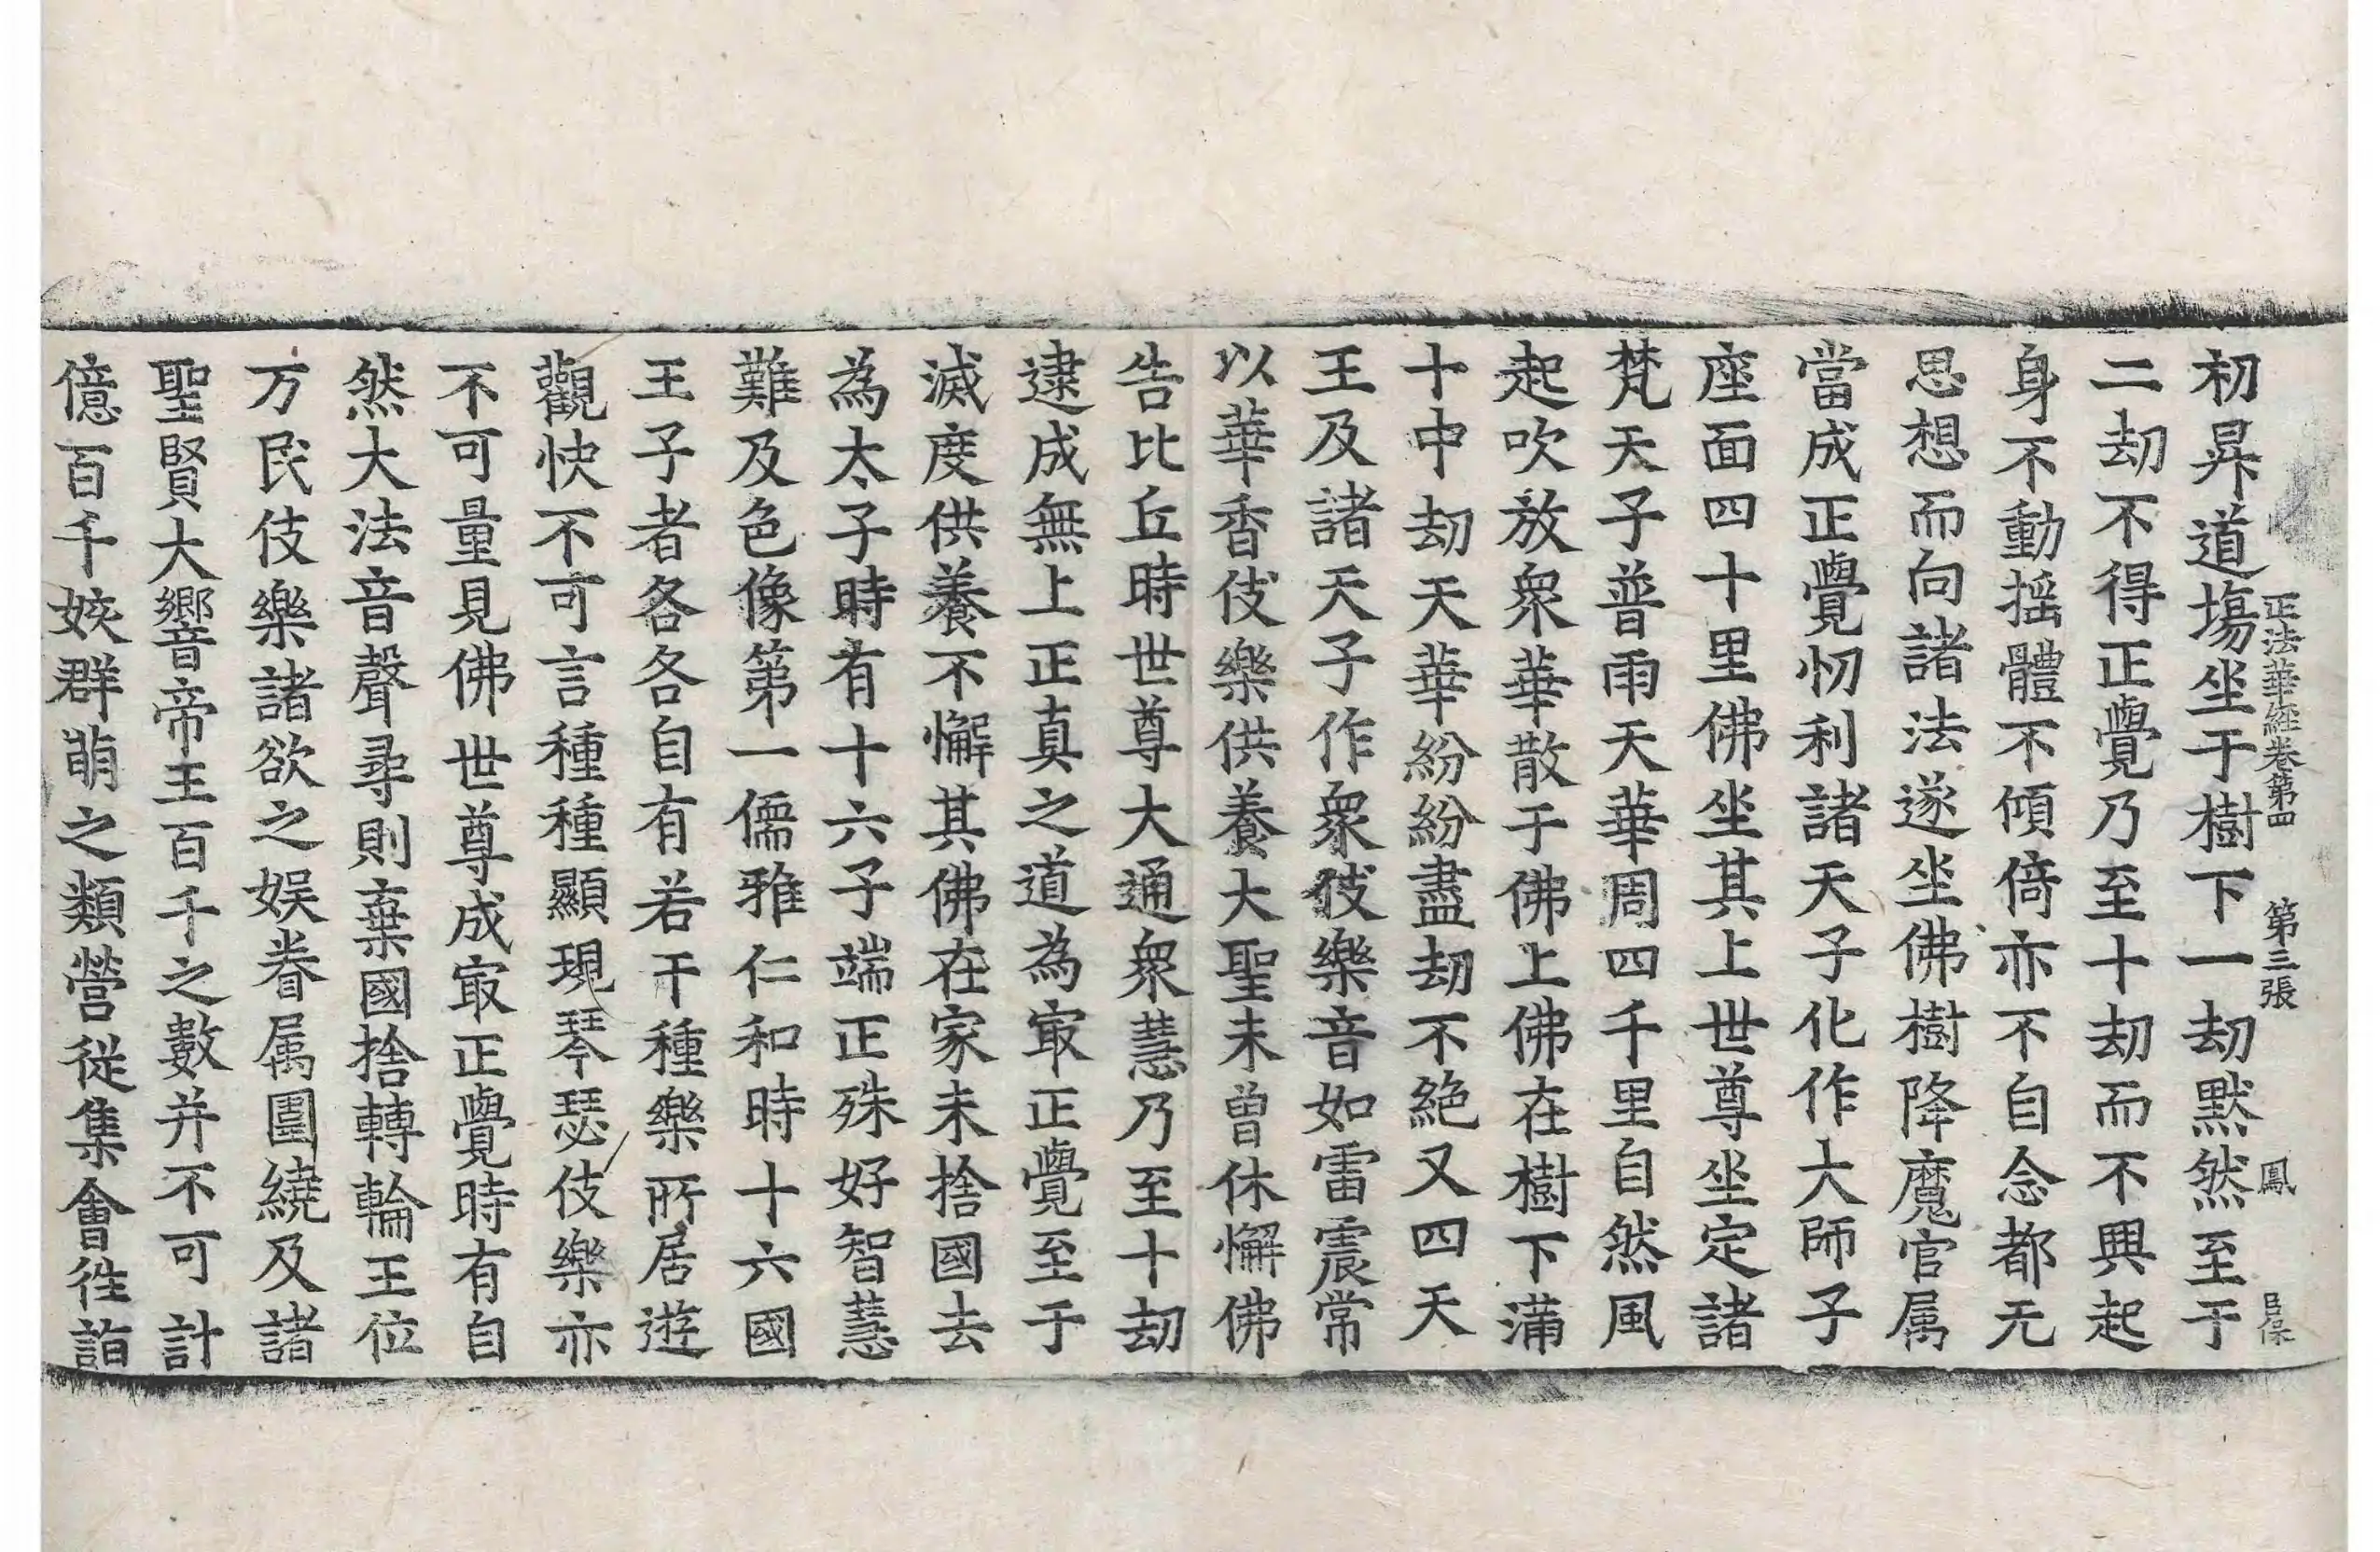 正法華経卷第四　第三張　鳳
初昇道場坐于樹下一劫默然至于
二劫不得正覺乃至十劫而不興起
身不動揺體不傾倚亦不自念都无
思想而向諸法遂坐佛樹降魔官属
當成正覺忉利諸天子化作大師子
座面四十里佛坐其上世尊坐定諸
梵天子普雨天華周四千里自然風
起吹放衆華散于佛上佛在樹下滿
十中劫天華紛紛盡劫不絶又四天
王及諸天子作衆伎樂音如雷震常
以華香伎樂供養大聖未曾休懈佛
告比丘時世尊大通衆慧乃至十劫
逮成無上正真之道為㝡正覺至于
滅度供養不懈其佛在家未捨國去
為太子時有十六子端正殊好智慧
難及色像第一儒雅仁和時十六國
王子者各各自有若干種樂所居遊
觀快不可言種種顯現琴瑟伎樂亦
不可量見佛世尊成㝡正覺時有自
然大法音聲尋則棄國捨轉輪王位
万民伎樂諸欲之娱眷属圍繞及諸
聖賢大響帝王百千之數并不可計
億百千姟群萌之類營従集會往詣